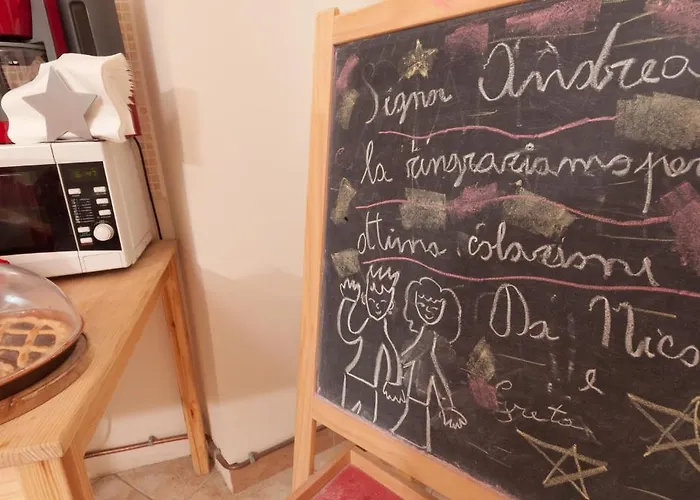 Signor Andrea
la ringraziamo per
ottima colazioni
Da Nico
e
Greta